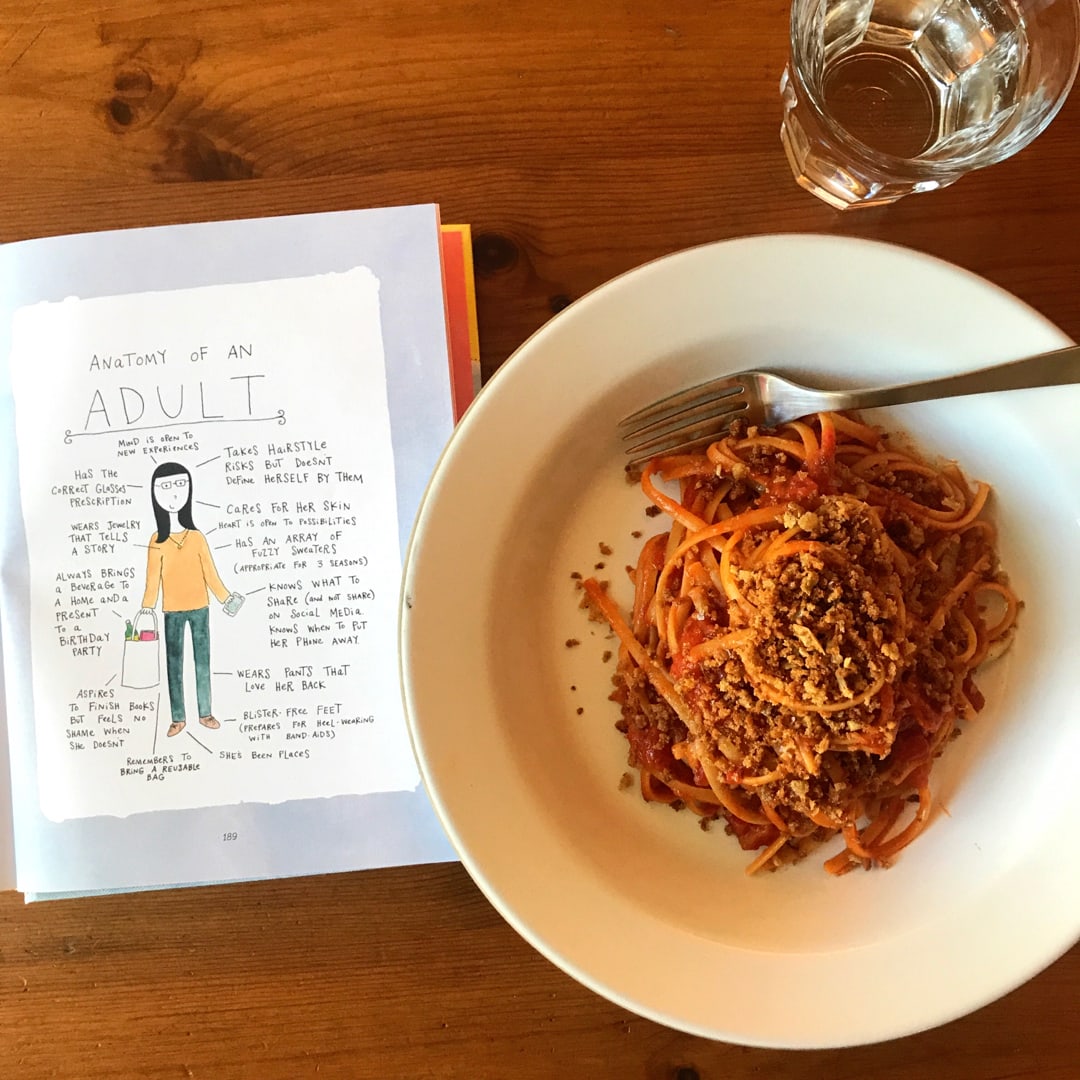 ANATOMY OF AN
ADULT
MIND IS OPEN TO
NEW EXPERIENCES
TAKES HAIRSTYLE
RISKS BUT DOESN'T
DEFINE HERSELF BY THEM
HAS THE
CORRECT GLASSES
PRESCRIPTION
CARES FOR HER SKIN
HEART IS OPEN TO POSSIBILITIES
WEARS JEWELRY
THAT TELLS
A STORY
HAS AN ARRAY OF
FUZZY SWEATERS
(APPROPRIATE FOR 3 SEASONS)
ALWAYS BRINGS
A BEVERAGE TO
A HOME AND A
PRESENT
TO A
BIRTHDAY
PARTY
KNOWS WHAT TO
SHARE (AND NOT SHARE)
ON SOCIAL MEDIA.
KNOWS WHEN TO PUT
HER PHONE AWAY.
WEARS PANTS THAT
LOVE HER BACK
ASPIRES
TO FINISH BOOKS
BUT FEELS NO
SHAME WHEN
SHE DOESN'T
BLISTER-FREE FEET
(PREPARES FOR HEEL-WEARING
WITH BAND-AIDS)
SHE'S BEEN PLACES
REMEMBERS TO
BRING A REUSABLE
BAG
189